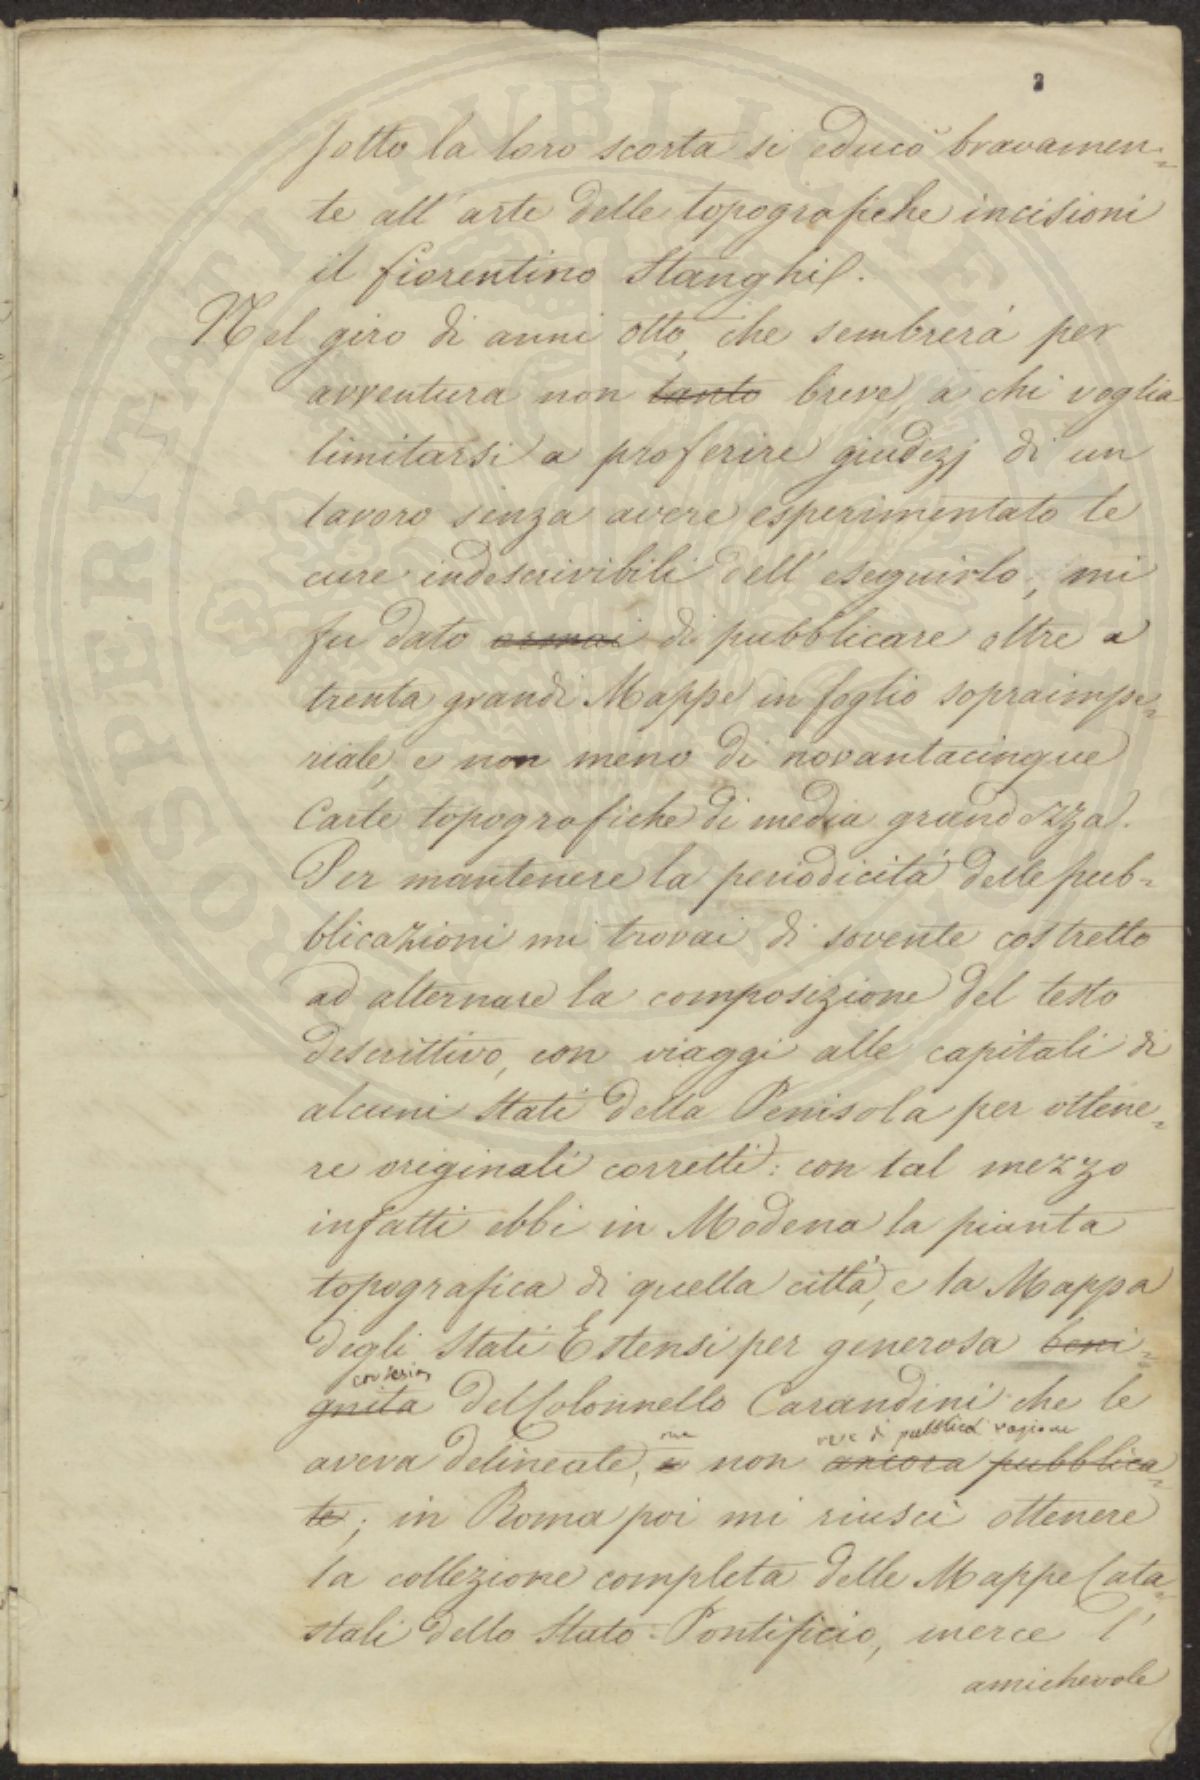 3
sotto la loro scorta si educò bravamen=
te all'arte delle topografiche incisioni
il fiorentino Stanghi.
Nel giro di anni otto, che sembrerà per
avventura non ~~tanto~~ breve, a chi voglia
limitarsi a proferire giudizj di un
lavoro senza avere esperimentato le
cure indescrivibili dell'eseguirlo, mi
fu dato ~~oramai~~ di pubblicare oltre a
trenta grandi Mappe in foglio sopraimpe=
riale, e non meno di novantacinque
Carte topografiche di media grandezza.
Per mantenere la periodicità delle pub=
blicazioni mi trovai di sovente costretto
ad alternare la composizione del testo
descrittivo, con viaggi alle capitali di
alcuni Stati della Penisola per ottene=
re originali corretti: con tal mezzo
infatti ebbi in Modena la pianta
topografica di quella città, e la Mappa
degli Stati Estensi per generosa ~~beni=~~
~~gnità~~ del Colonnello Carandini che le
aveva delineate, ma non ~~ancora~~ ~~pubblica=~~
di pubblica ragione
~~te~~; in Roma poi mi riuscì ottenere
la collezione completa delle Mappe Cata=
stali dello Stato Pontificio, merce l'
amichevole
PROSPERITATI PUBLICAE